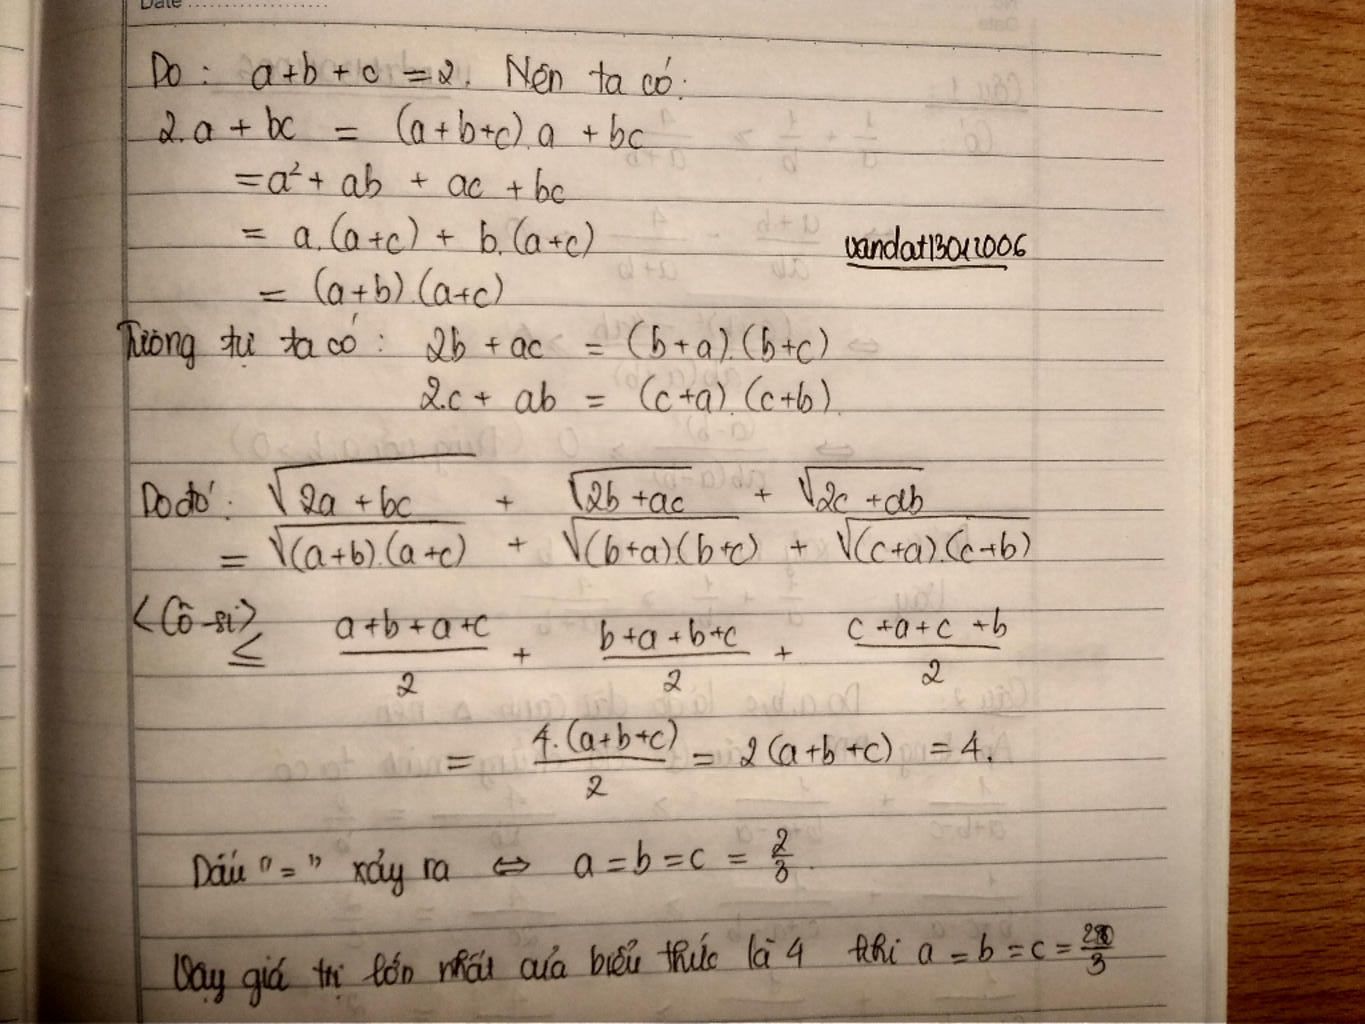 Date
Do : a+b+c = 2. Nên ta có:
2.a + bc = (a+b+c).a + bc
= a² + ab + ac + bc
= a.(a+c) + b.(a+c)
vandat13012006
= (a+b).(a+c)
Tương tự ta có : 2b + ac = (b+a).(b+c)
2.c + ab = (c+a).(c+b).
Do đó : √(2a + bc) + √(2b + ac) + √(2c + ab)
= √((a+b).(a+c)) + √((b+a)(b+c)) + √((c+a).(c+b))
<Cô-si> ≤ (a+b+a+c)/2 + (b+a+b+c)/2 + (c+a+c+b)/2
= 4.(a+b+c)/2 = 2(a+b+c) = 4.
Dấu "=" xảy ra ⇔ a = b = c = 2/3.
Vậy giá trị lớn nhất của biểu thức là 4 khi a = b = c = 2/3